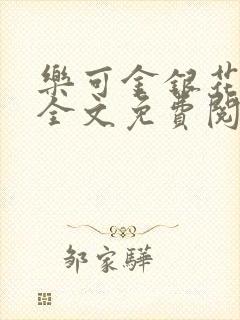 樂可金銀花
全文免費閱
鄒家驊